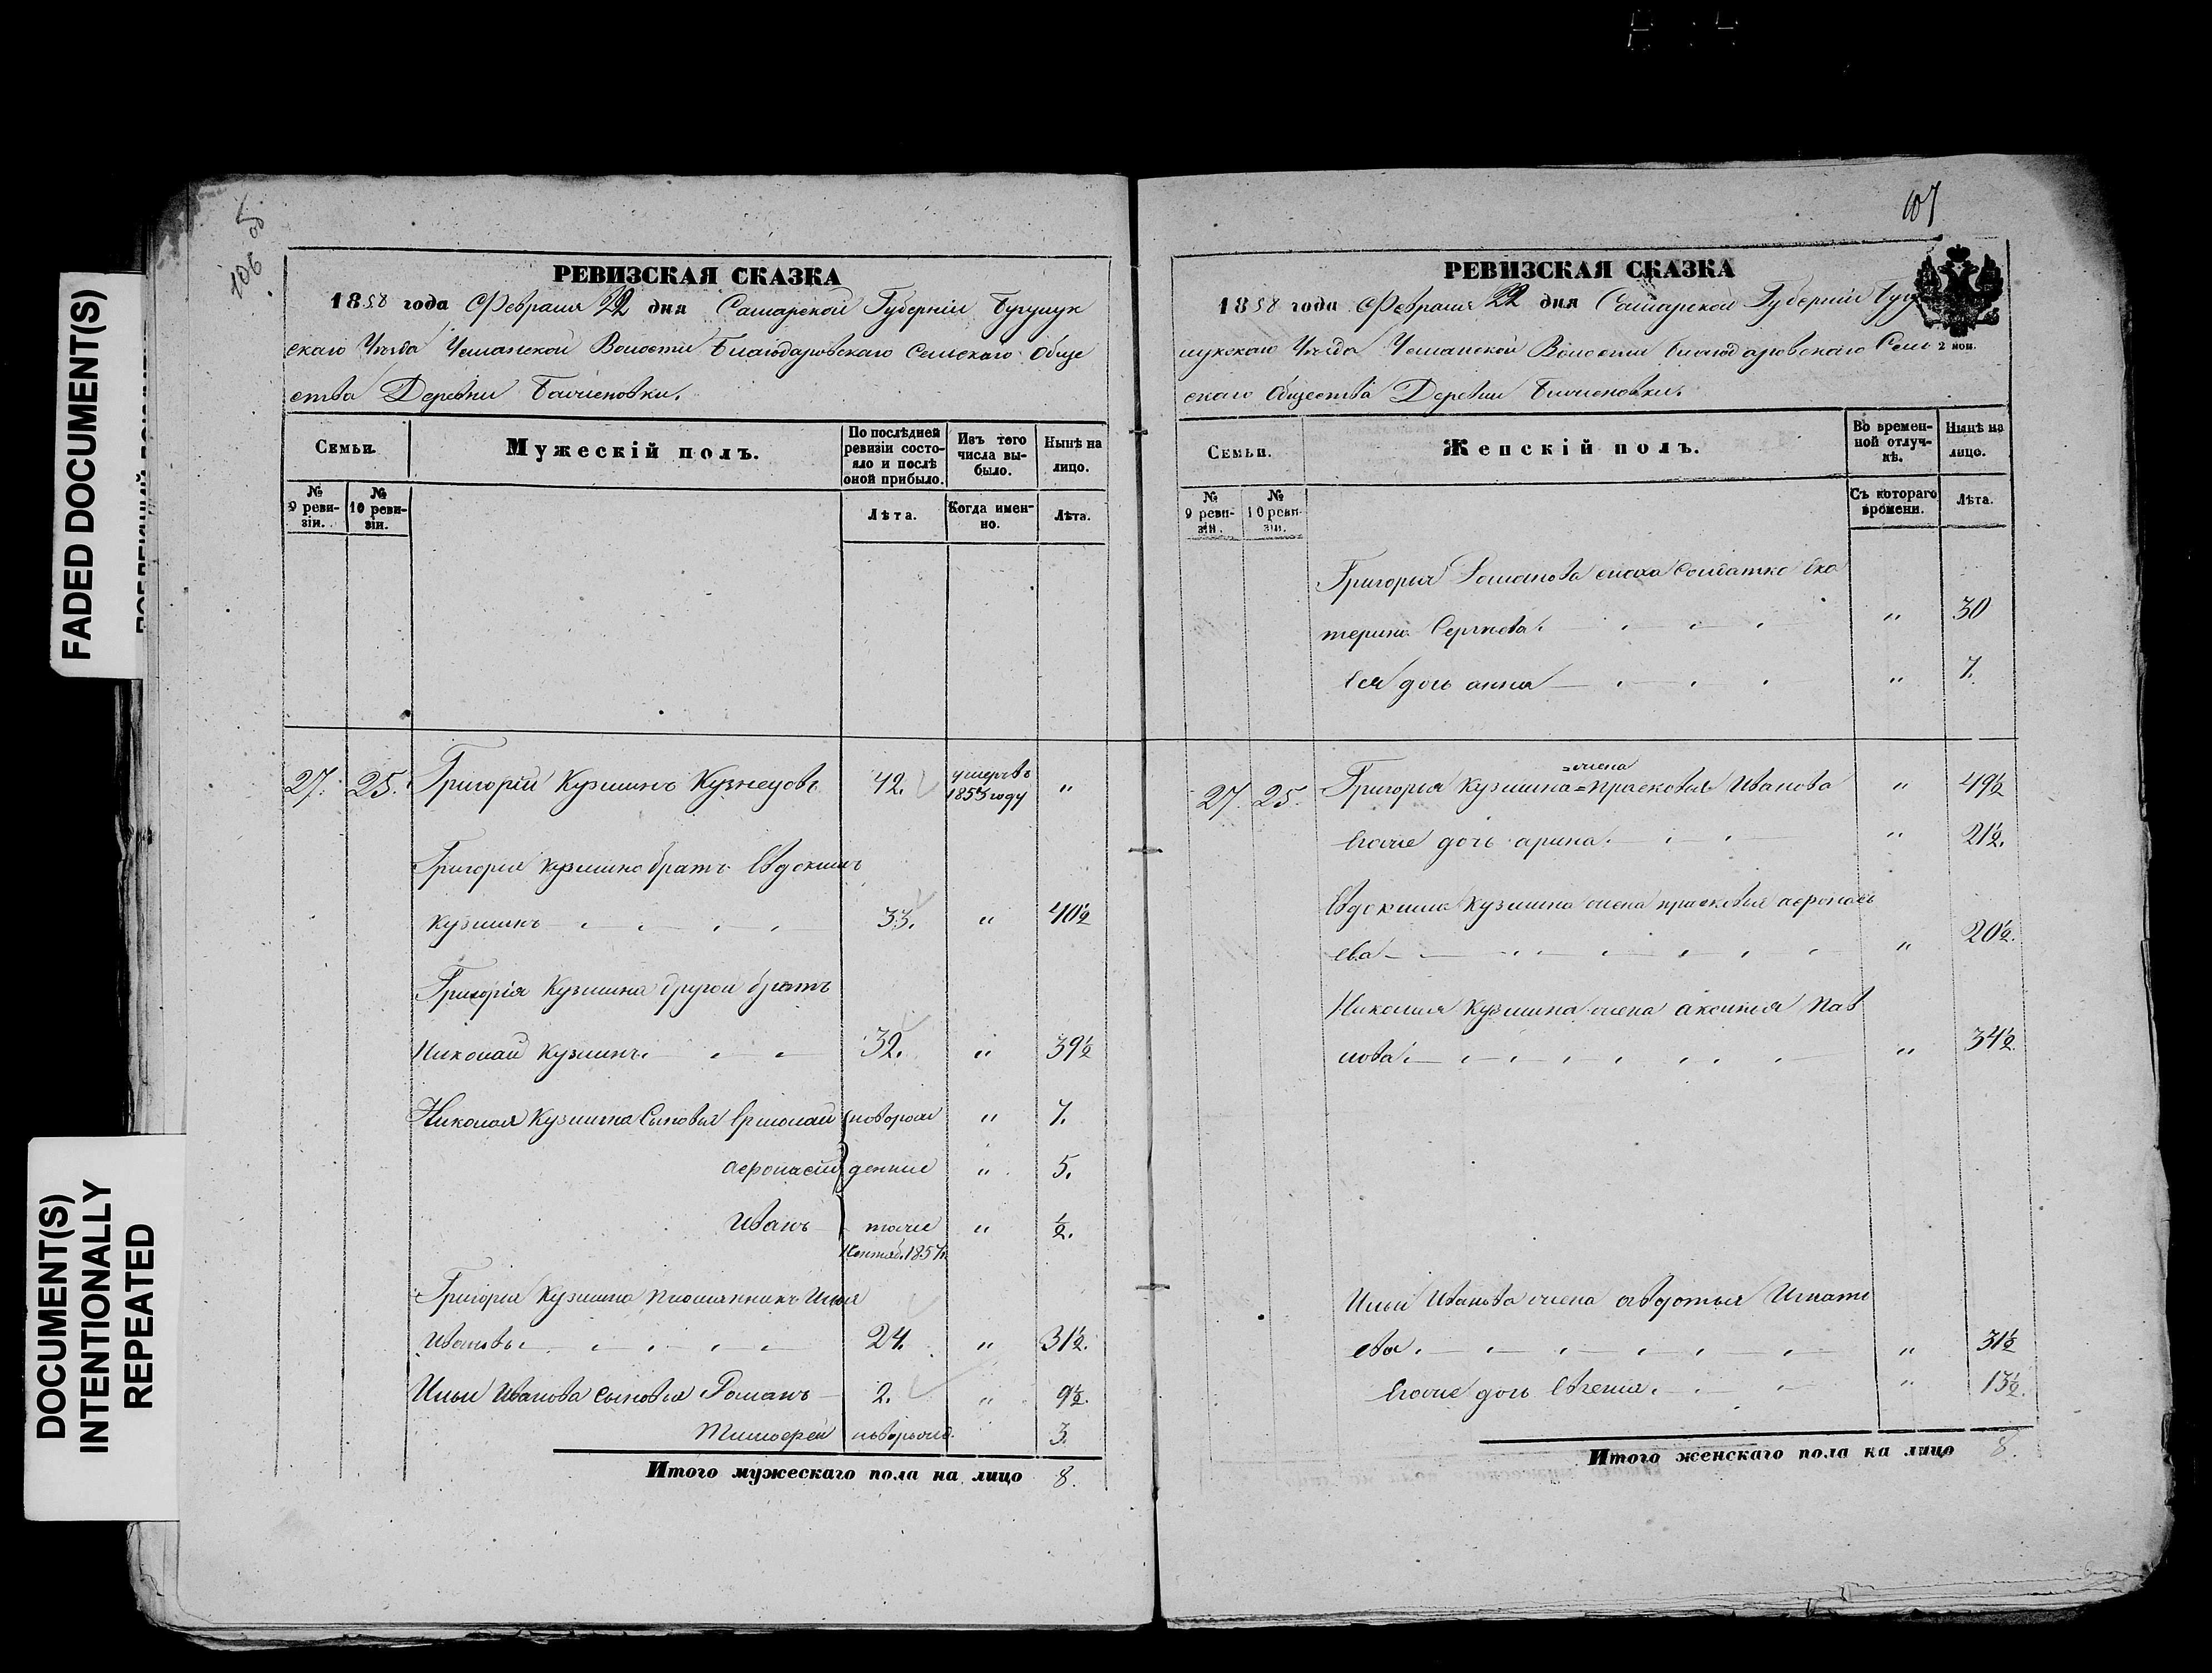 FADED DOCUMENT(S)
DOCUMENT(S)
INTENTIONALLY
REPEATED
106
РЕВИЗСКАЯ СКАЗКА
1858 года Февраля 22 дня Самарской Губерніи Бугурук
скаго Уѣзда Волости Благодаровскаго Сельскаго Обще
ства Деревни
Семьи.
Мужескій полъ.
По послѣдней ревизіи состояло и послѣ оной прибыло.
Изъ того числа выбыло.
Нынѣ на лицо.
№ 9 ревизіи.
№ 10 ревизіи.
Лѣта.
Когда именно.
Лѣта.
27. 25. Григорій Кузминъ Кузнецовъ 42. умеръ в 1855 году "
Григорья Кузмина братъ Евдокимъ
Кузминъ 33. " 40½
Григорія Кузмина другой братъ
Николай Кузминъ. 32. " 39½
Николая Кузмина Сыновья Ермолай новорож " 7.
Афонасій денные " 5.
Иванъ тоже " ½.
Сентяб. 1857 г.
Григорья Кузмина племянникъ Илья
Ивановъ 24. " 31½.
Ильи Иванова сыновья Романъ 2. " 9½.
Тимофей новорожд. 3.
Итого мужескаго пола на лицо 8.
107
РЕВИЗСКАЯ СКАЗКА
1858 года Февраля 22 дня Самарской Губерніи Бугу
2 коп.
Уѣзда Волости Благодаровскаго Сель
скаго Общества Деревни
Семьи.
Женскій полъ.
Во временной отлучкѣ.
Нынѣ на лицо.
№ 9 ревизіи.
№ 10 ревизіи.
Съ котораго времени.
Лѣта.
Григорья Романова сноха Солдатка Ека
терина Сергѣева. " 30
Ея дочь анна " 7.
=жена
27. 25. Григорья Кузмина=прасковья Иванова " 49½
Егоже дочь арина. " 21½.
Евдокима Кузмина жена прасковья афонась
ева " 20½.
Николая Кузмина жена аксинья Пав
лова " 34½.
Ильи Иванова жена авдотья Игнать
ева. " 31½
Егоже дочь Евгенія. " 13½.
Итого женскаго пола на лицо 8.